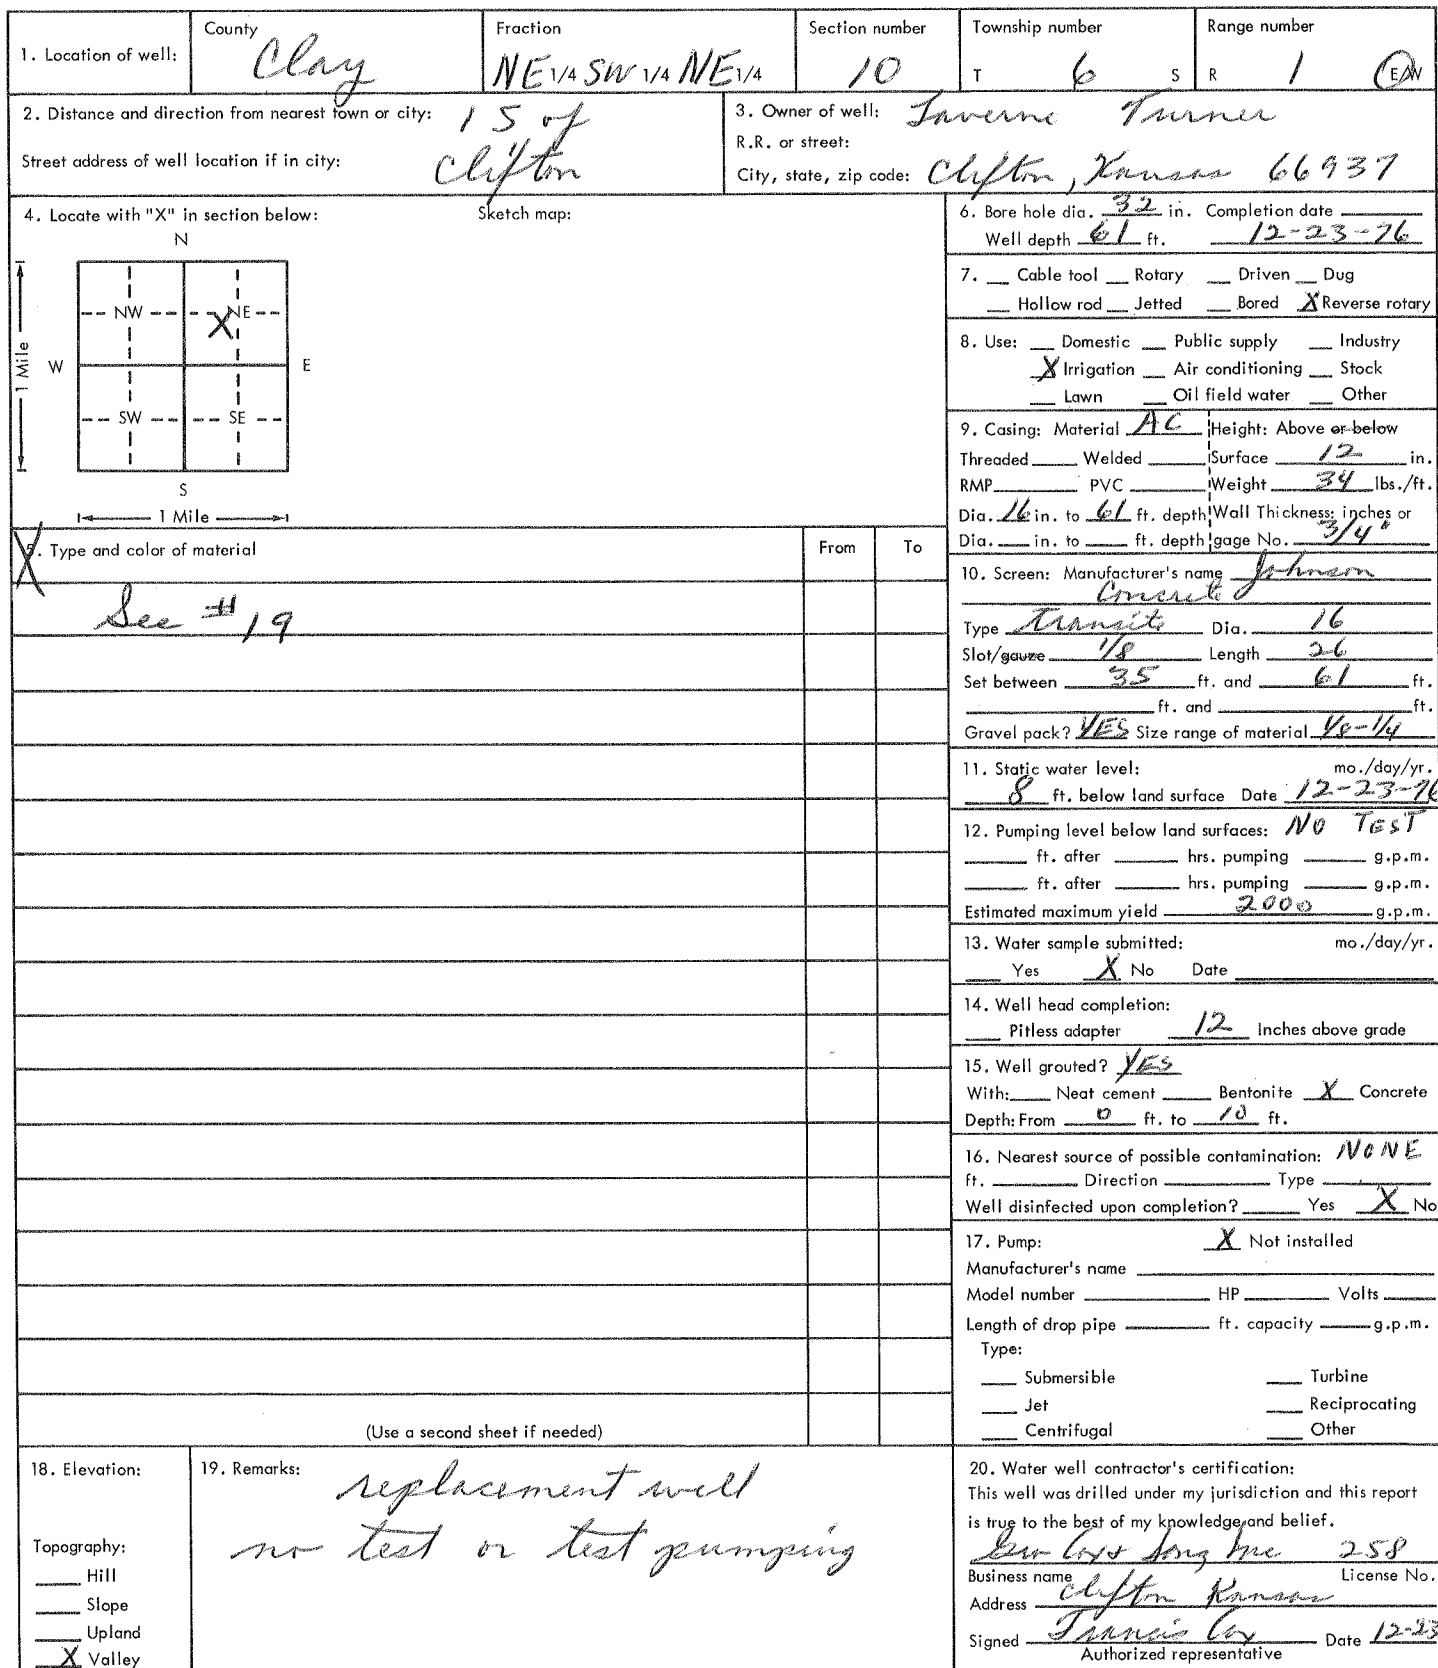 1. Location of well: County Clay Fraction NE 1/4 SW 1/4 NE 1/4 Section number 10 Township number T 6 S Range number R 1 E/W
2. Distance and direction from nearest town or city: 1 S of
Clifton
Street address of well location if in city:
3. Owner of well: Laverne Turner
R.R. or street:
City, state, zip code: Clifton, Kansas 66937
4. Locate with "X" in section below: Sketch map:
N
NW X NE
W E
1 Mile
SW SE
S
1 Mile
X
5. Type and color of material From To
See #19
(Use a second sheet if needed)
6. Bore hole dia. 32 in. Completion date
Well depth 61 ft. 12-23-76
7. Cable tool Rotary Driven Dug
Hollow rod Jetted Bored X Reverse rotary
8. Use: Domestic Public supply Industry
X Irrigation Air conditioning Stock
Lawn Oil field water Other
9. Casing: Material AC Height: Above or below
Threaded Welded Surface 12 in.
RMP PVC Weight 34 lbs./ft.
Dia. 16 in. to 61 ft. depth Wall Thickness: inches or
Dia. in. to ft. depth gage No. 3/4"
10. Screen: Manufacturer's name Johnson
Concrete
Type Transite Dia. 16
Slot/gauze 1/8 Length 26
Set between 35 ft. and 61 ft.
ft. and ft.
Gravel pack? YES Size range of material 1/8-1/4
11. Static water level: mo./day/yr.
8 ft. below land surface Date 12-23-76
12. Pumping level below land surfaces: NO TEST
ft. after hrs. pumping g.p.m.
ft. after hrs. pumping g.p.m.
Estimated maximum yield 2000 g.p.m.
13. Water sample submitted: mo./day/yr.
Yes X No Date
14. Well head completion:
Pitless adapter 12 Inches above grade
15. Well grouted? YES
With: Neat cement Bentonite X Concrete
Depth: From 0 ft. to 10 ft.
16. Nearest source of possible contamination: NONE
ft. Direction Type
Well disinfected upon completion? Yes X No
17. Pump: X Not installed
Manufacturer's name
Model number HP Volts
Length of drop pipe ft. capacity g.p.m.
Type:
Submersible Turbine
Jet Reciprocating
Centrifugal Other
18. Elevation:
Topography:
Hill
Slope
Upland
X Valley
19. Remarks: replacement well
no test or test pumping
20. Water well contractor's certification:
This well was drilled under my jurisdiction and this report
is true to the best of my knowledge and belief.
Geo Cox & Sons Inc 258
Business name License No.
Address Clifton Kansas
Signed Francis Cox Date 12-23
Authorized representative